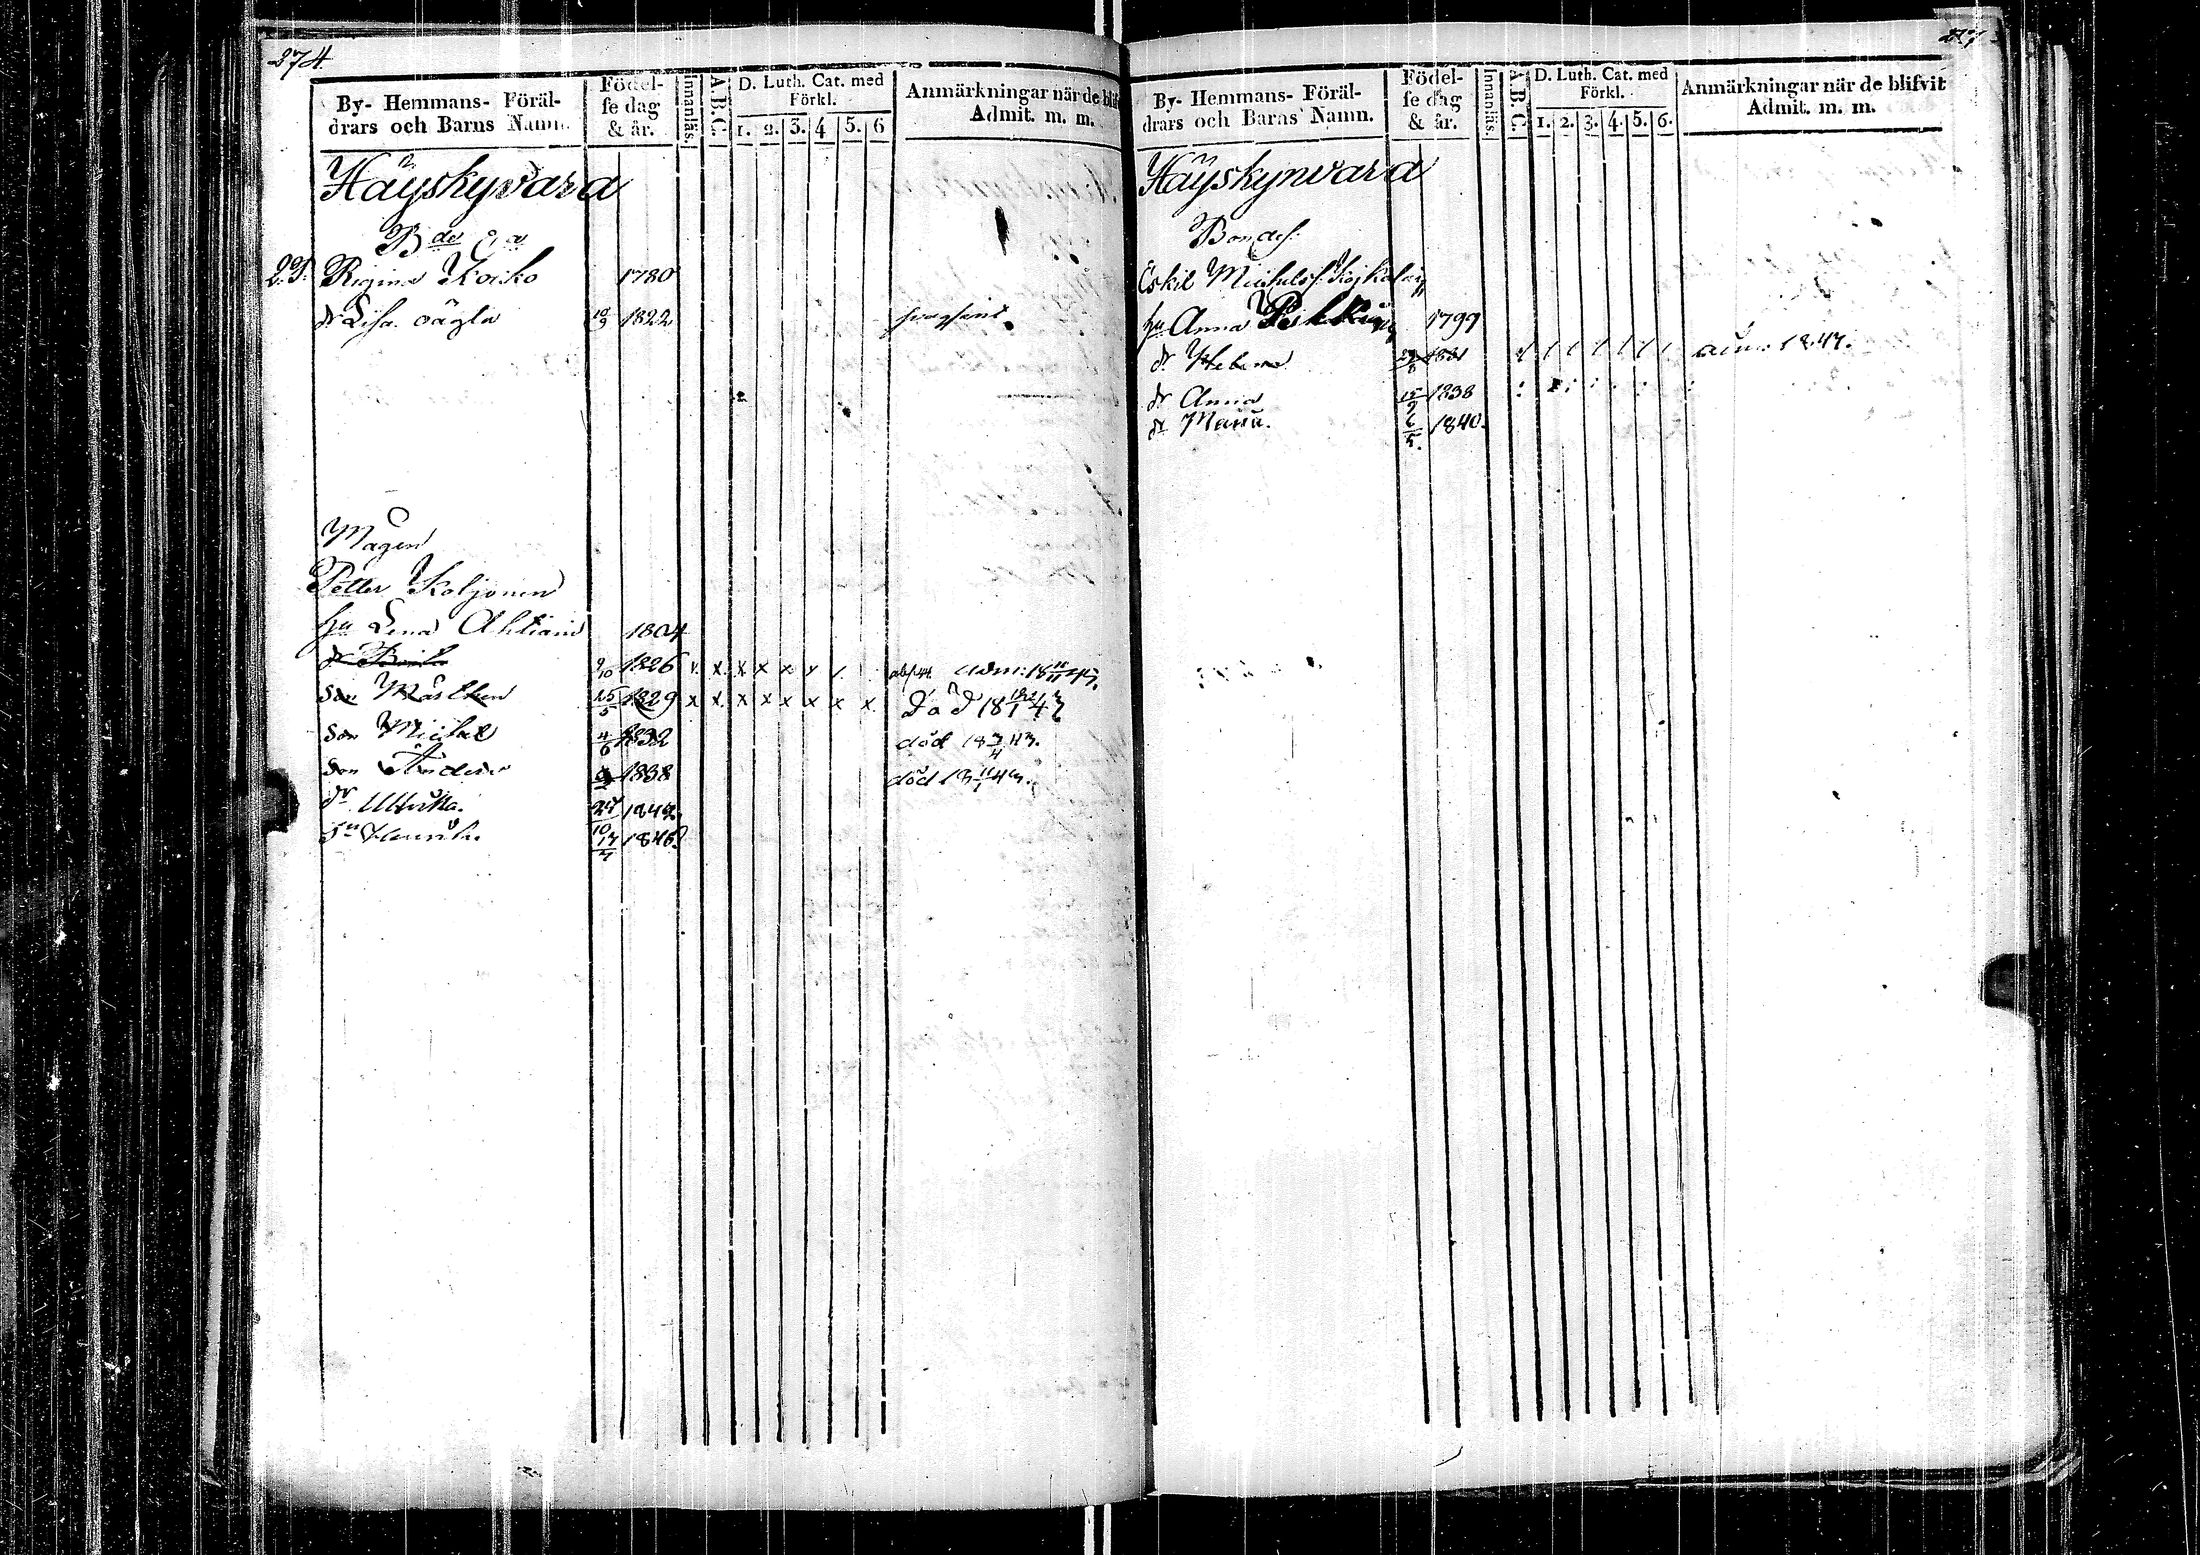 274
By- Hemmans- Föräl-
drars och Barns Namn.
Födel-
se dag
& år.
Innanläs.
A.B.C.
D. Luth. Cat. med
Förkl.
1. 2. 3. 4 5. 6
Anmärkningar när de blif
Admit. m. m.
Häyskyvara
Regina Koiko 1780
dr Lisa oägta 10/3 1822
Mågen
Petter Koljonen
hu Lena Ahtiain 1804
dr 9/10 1826 x x x x x adm: 18 47.
son Mårthen 25/5 1829 x x x x x x x x död 18 47
son Michel 4/6 1832 död 18 3/4 43.
son Anders 1838 död 18 43.
dr Ulrika. 27/10 1842.
sn Henrik. 17/7 1846
By- Hemmans- Föräl-
drars och Barns Namn.
Födel-
se dag
& år.
Innanläs.
A.B.C.
D. Luth. Cat. med
Förkl.
1. 2. 3. 4. 5. 6.
Anmärkningar när de blifvit
Admit. m. m.
Häyskynvara
Bondes.
Eskil Michelss.
hu Anna 1799
dr Helena 1831 adm: 1847.
dr Anna 15/9 1838
dr Maria. 6/5. 1840.